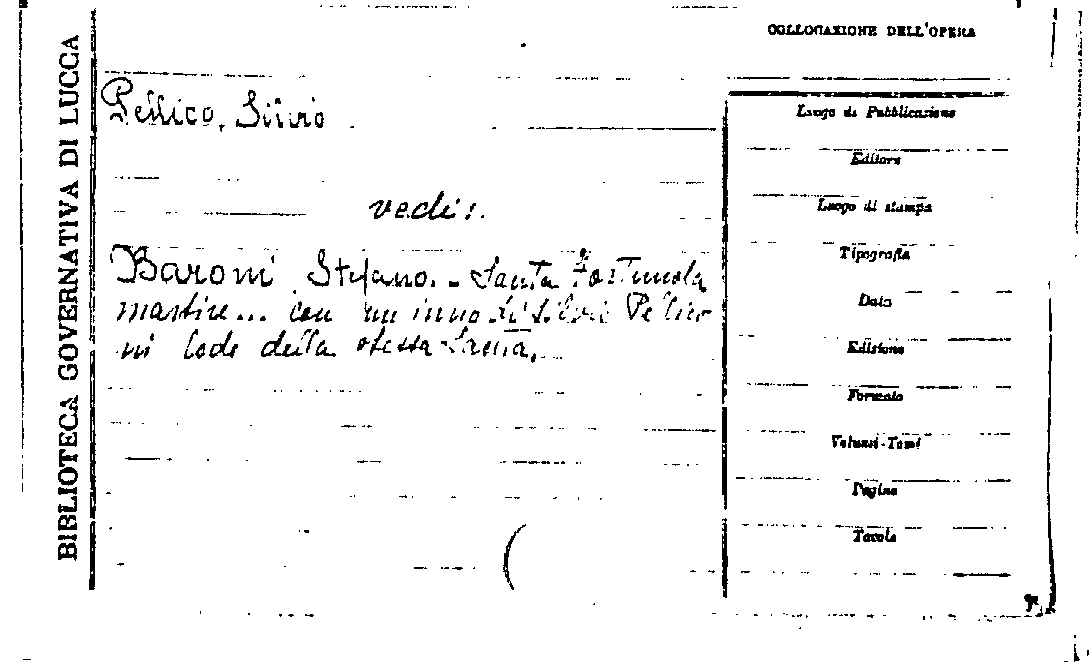 BIBLIOTECA GOVERNATIVA DI LUCCA
COLLOCAZIONE DELL'OPERA
Pellico, Silvio
vedi:
Baroni Stefano. - Santa Fortunola
martire... con un inno di Silvio Pellico
in lode della stessa Santa.
Luogo di Pubblicazione
Editore
Luogo di stampa
Tipografia
Data
Edizione
Formato
Volumi-Tomi
Pagine
Tavole